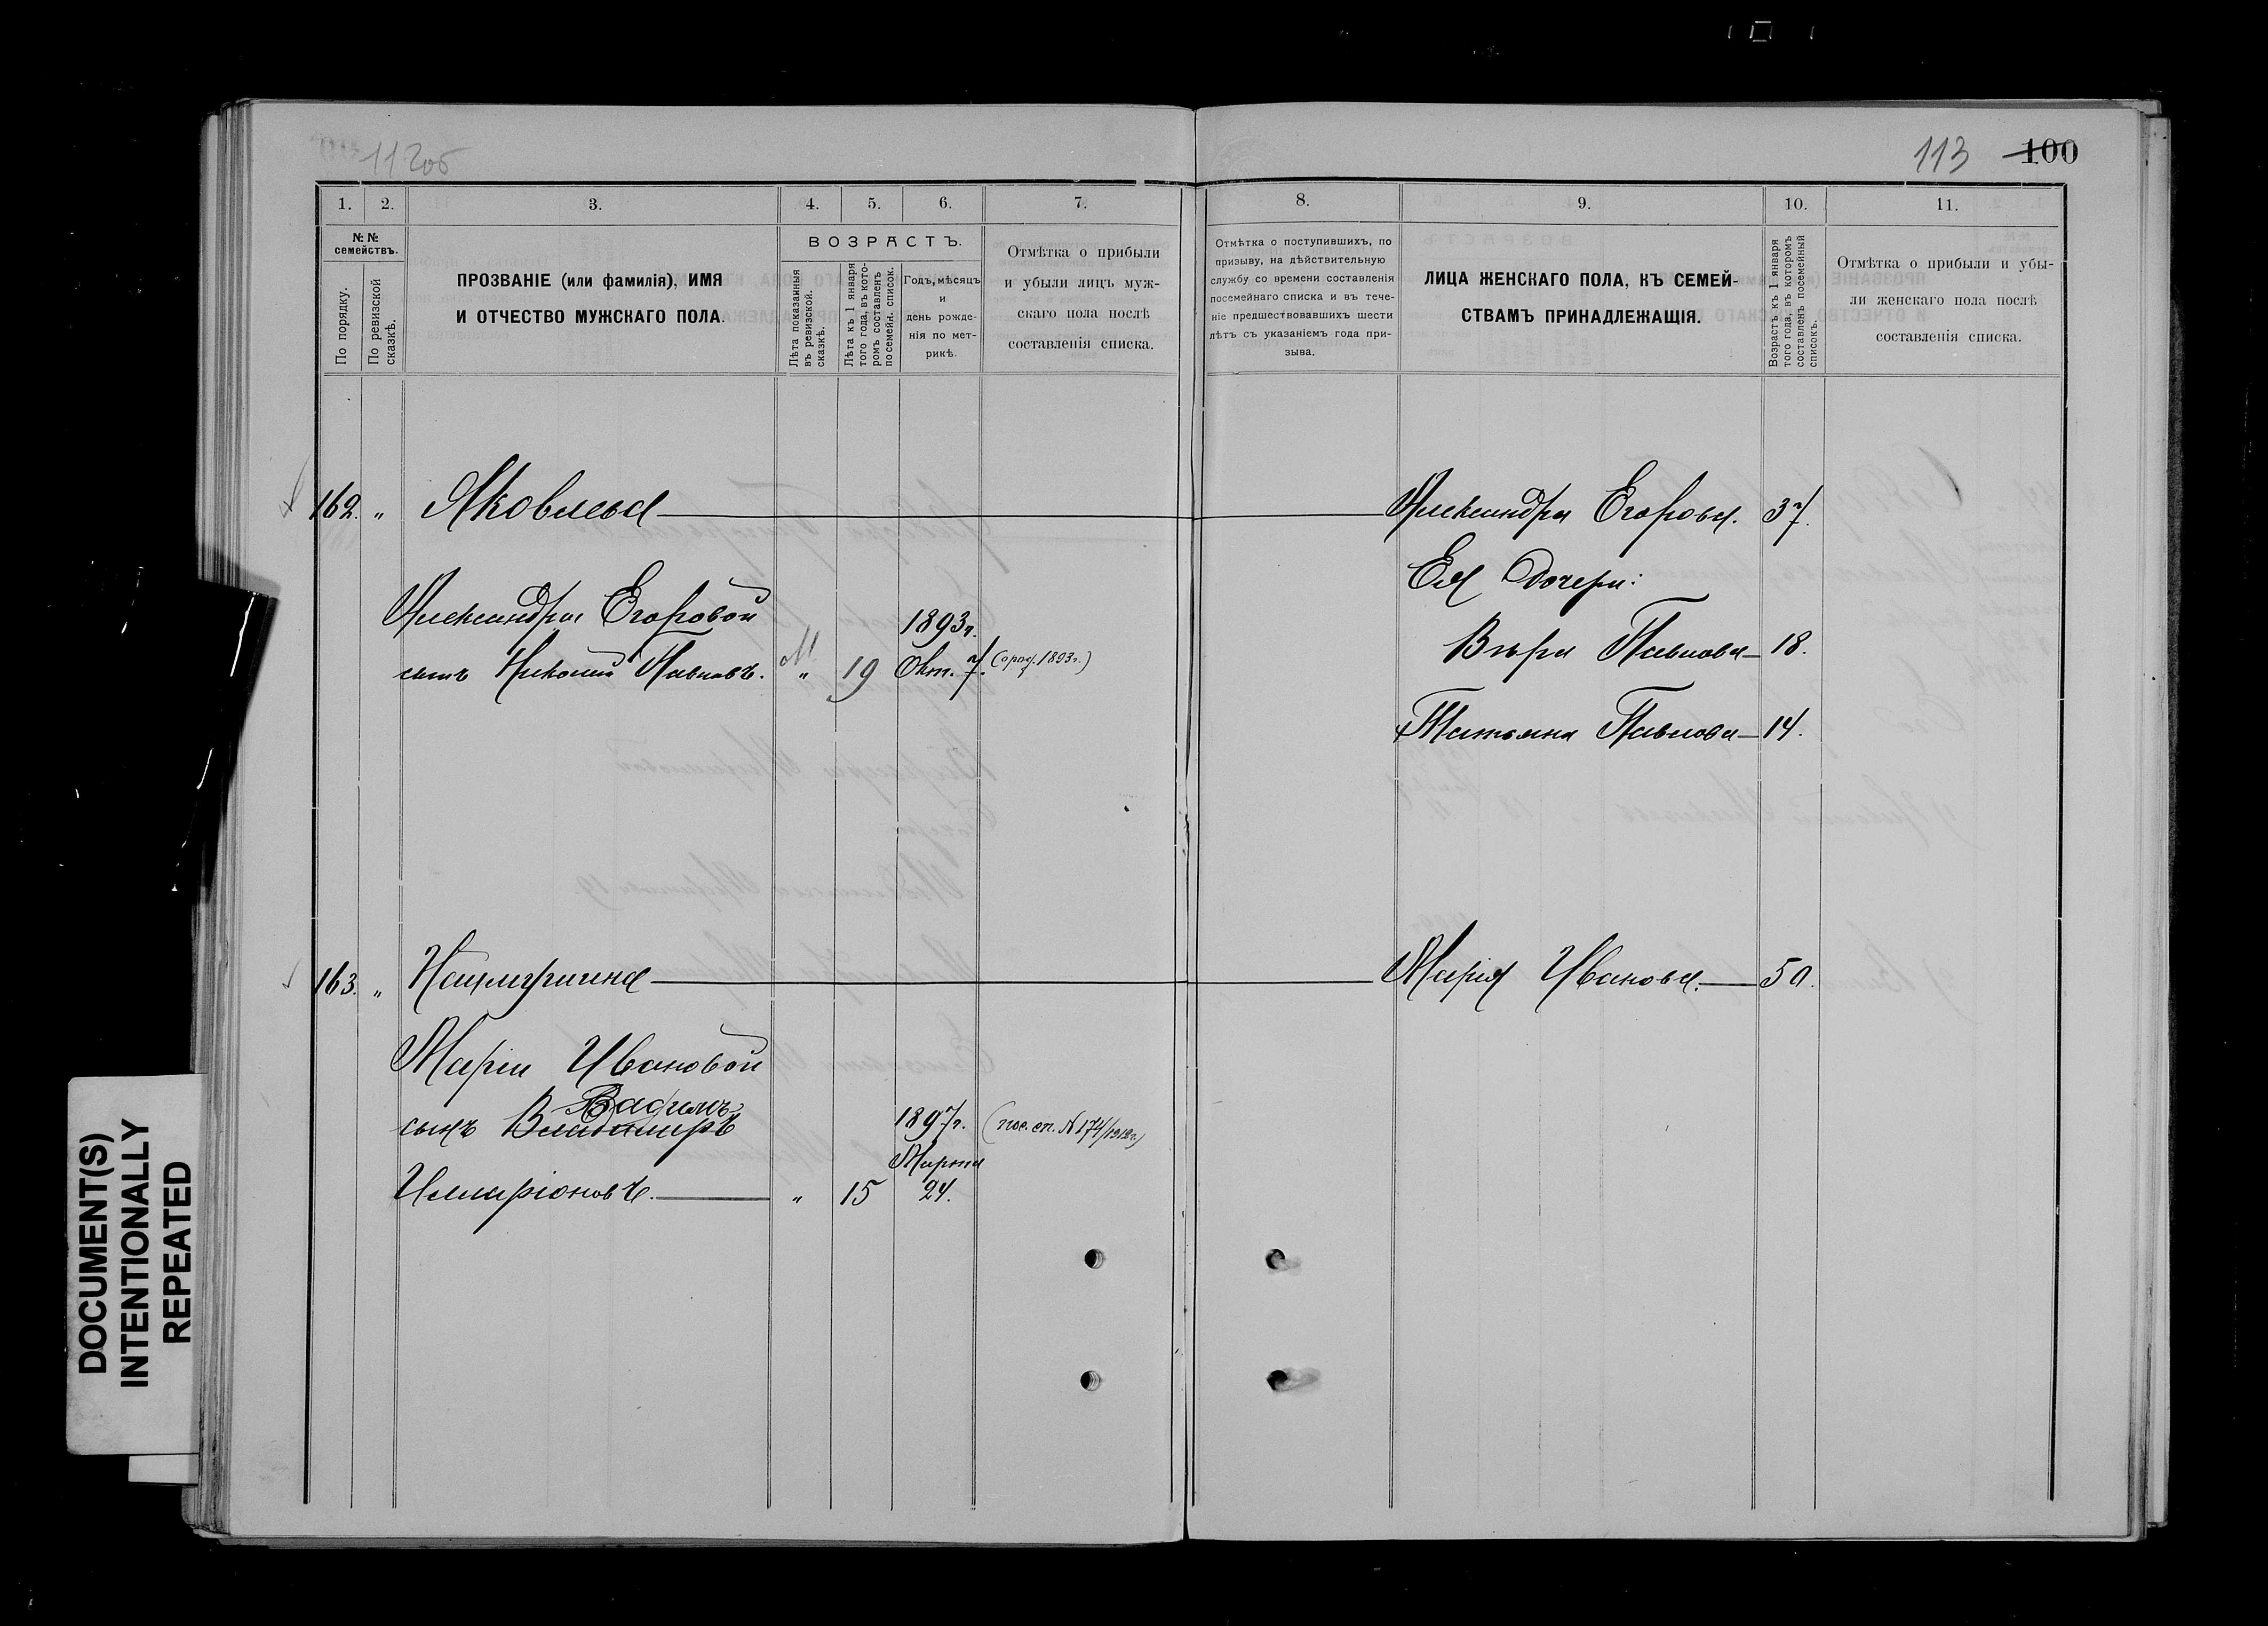 112об
113 100
1. 2. 3. 4. 5. 6. 7. 8. 9. 10. 11.
№ № семействъ.
По порядку.
По ревизской сказкѣ.
ПРОЗВАНІЕ (или фамилія), ИМЯ
И ОТЧЕСТВО МУЖСКАГО ПОЛА.
ВОЗРАСТЪ.
Лѣта показанныя въ ревизской сказкѣ.
Лѣта къ 1 января того года, въ которомъ составленъ посемейн. список.
Годъ, мѣсяцъ
и
день рожде-
нія по мет-
рикѣ.
Отмѣтка о прибыли
и убыли лицъ муж-
скаго пола послѣ
составленія списка.
Отмѣтка о поступившихъ, по
призыву, на дѣйствительную
службу со времени составленія
посемейнаго списка и въ тече-
ніе предшествовавшихъ шести
лѣтъ съ указаніемъ года при-
зыва.
ЛИЦА ЖЕНСКАГО ПОЛА, КЪ СЕМЕЙ-
СТВАМЪ ПРИНАДЛЕЖАЩІЯ.
Возрастъ къ 1 января
того года, въ которомъ
составленъ посемейный
списокъ.
Отмѣтка о прибыли и убы-
ли женскаго пола послѣ
составленія списка.
162. „ Яковлева Александра Егорова. 37.
Ея дочери:
Александры Егоровой 1893г.
сынъ Николай Павловъ. „ 19 Окт. 7. Вѣра Павлова 18.
Татьяна Павлова 14.
163. „ Марія Иванова. 50.
Маріи Ивановой
Вадимъ
сынъ Владимиръ 1897г. (пос. сп. № 174/1912г.)
Марта
Илларіоновъ. „ 15 24.
DOCUMENT(S)
INTENTIONALLY
REPEATED